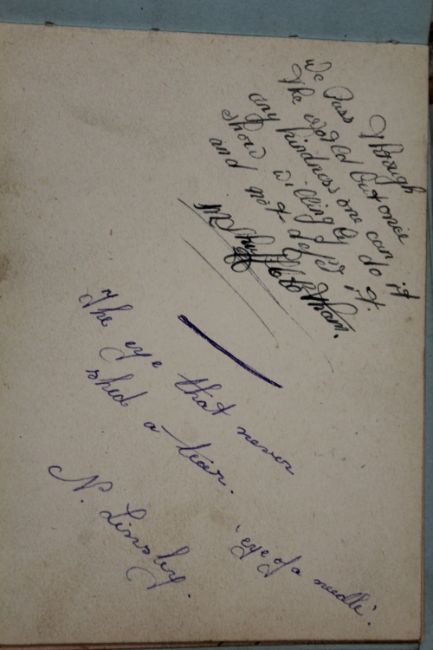 We Pass Through
The world but once
any kindness one can
show willingly do it
and not defer it.
The eye that never
shed a tear.
'eye of a needle'.
N. Linsley.